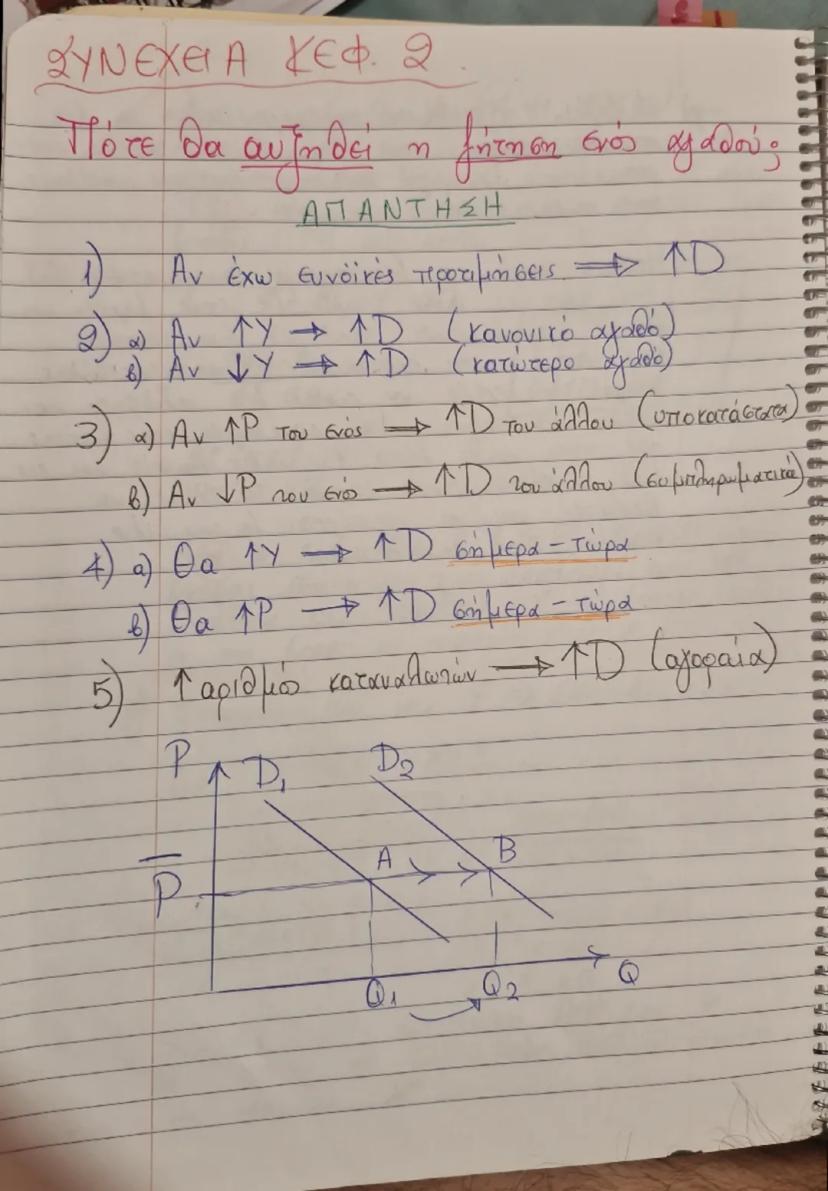 ΣΥΝΕΧΕΙΑ ΚΕΦ. 2.
Πότε θα αυξηθεί η ζήτηση ενός αγαθού;
ΑΠΑΝΤΗΣΗ
1) Αν έχω ευνόϊκές προτιμήσεις ⟹ ↑D
2) α) Αν ↑Υ → ↑D (κανονικό αγαθό)
β) Αν ↓Υ → ↑D (κατώτερο αγαθό)
3) α) Αν ↑P του ενός → ↑D του άλλου (υποκατάστατα)
β) Αν ↓P του ενός → ↑D του άλλου (συμπληρωματικά)
4) α) Θα ↑Υ → ↑D σήμερα - τώρα
β) Θα ↑P → ↑D σήμερα - τώρα
5) ↑ αριθμός καταναλωτών → ↑D (αγοραία)
P D₁ D₂
A B
P̅
Q₁ Q₂ Q